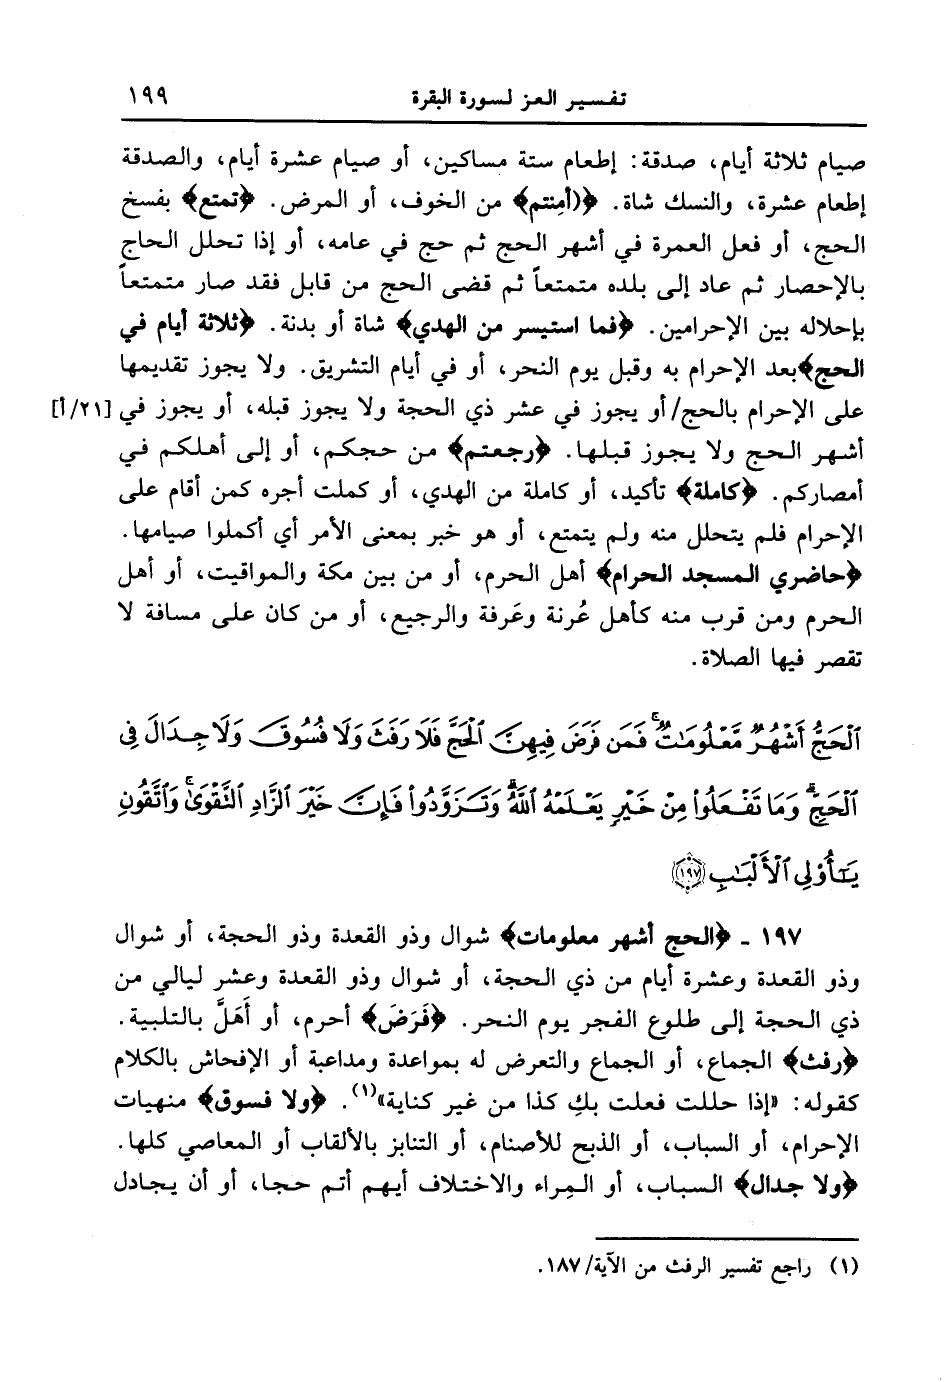 تفسير العز لسورة البقرة ١٩٩
صيام ثلاثة أيام، صدقة: إطعام ستة مساكين، أو صيام عشرة أيام، والصدقة
إطعام عشرة، والنسك شاة. ﴿(أمِنتم﴾ من الخوف، أو المرض. ﴿تمتع﴾ بفسخ
الحج، أو فعل العمرة في أشهر الحج ثم حج في عامه، أو إذا تحلل الحاج
بالإحصار ثم عاد إلى بلده متمتعاً ثم قضى الحج من قابل فقد صار متمتعاً
بإحلاله بين الإحرامين. ﴿فما استيسر من الهدي﴾ شاة أو بدنة. ﴿ثلاثة أيام في
الحج﴾بعد الإحرام به وقبل يوم النحر، أو في أيام التشريق. ولا يجوز تقديمها
على الإحرام بالحج/أو يجوز في عشر ذي الحجة ولا يجوز قبله، أو يجوز في [٢١/أ]
أشهر الحج ولا يجوز قبلها. ﴿رجعتم﴾ من حجكم، أو إلى أهلكم في
أمصاركم. ﴿كاملة﴾ تأكيد، أو كاملة من الهدي، أو كملت أجره كمن أقام على
الإحرام فلم يتحلل منه ولم يتمتع، أو هو خبر بمعنى الأمر أي أكملوا صيامها.
﴿حاضري المسجد الحرام﴾ أهل الحرم، أو من بين مكة والمواقيت، أو أهل
الحرم ومن قرب منه كأهل عُرنة وعَرفة والرجيع، أو من كان على مسافة لا
تقصر فيها الصلاة.
ٱلْحَجُّ أَشْهُرٌ مَّعْلُومَٰتٌ ۚ فَمَن فَرَضَ فِيهِنَّ ٱلْحَجَّ فَلَا رَفَثَ وَلَا فُسُوقَ وَلَا جِدَالَ فِى
ٱلْحَجِّ ۗ وَمَا تَفْعَلُوا۟ مِنْ خَيْرٍ يَعْلَمْهُ ٱللَّهُ ۗ وَتَزَوَّدُوا۟ فَإِنَّ خَيْرَ ٱلزَّادِ ٱلتَّقْوَىٰ ۚ وَٱتَّقُونِ
يَٰٓأُو۟لِى ٱلْأَلْبَٰبِ ﴿١٩٧﴾
١٩٧ ـ ﴿الحج أشهر معلومات﴾ شوال وذو القعدة وذو الحجة، أو شوال
وذو القعدة وعشرة أيام من ذي الحجة، أو شوال وذو القعدة وعشر ليالي من
ذي الحجة إلى طلوع الفجر يوم النحر. ﴿فَرَضَ﴾ أحرم، أو أَهَلَّ بالتلبية.
﴿رفث﴾ الجماع، أو الجماع والتعرض له بمواعدة ومداعبة أو الإفحاش بالكلام
كقوله: «إذا حللت فعلت بكِ كذا من غير كناية»(١). ﴿ولا فسوق﴾ منهيات
الإحرام، أو السباب، أو الذبح للأصنام، أو التنابز بالألقاب أو المعاصي كلها.
﴿ولا جدال﴾ السباب، أو المِراء والاختلاف أيهم أتم حجا، أو أن يجادل
(١) راجع تفسير الرفث من الآية/١٨٧.